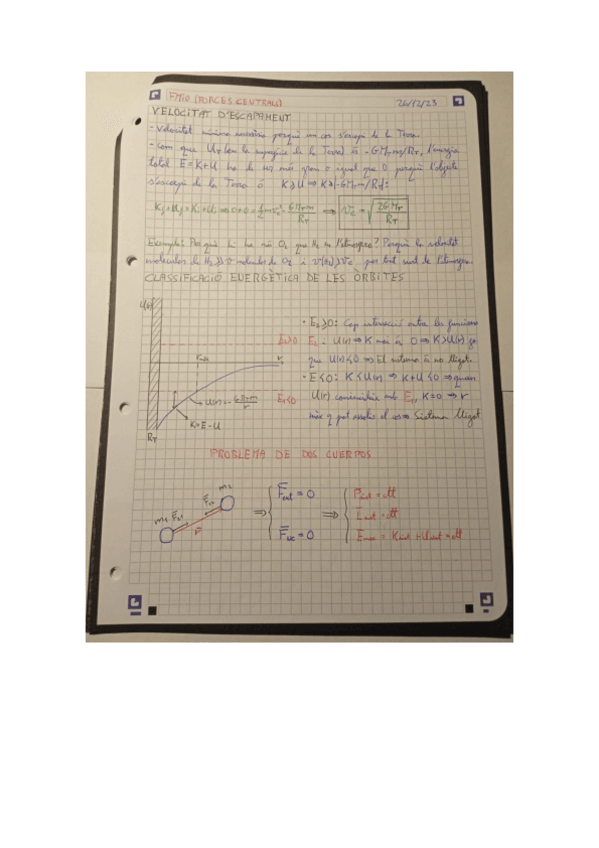 FM10 (FORCES CENTRALS) 26/12/23
VELOCITAT D'ESCAPAMENT
- Velocitat mínima necessària perquè un cos s'escapi de la Terra.
- Com que U_T (en la superfície de la Terra) és -GM_T m/R_T, l'energia
total E = K+U ha de ser més gran o igual que 0 perquè l'objecte
s'escapi de la Terra o K ≥ U ⇒ K ≥ |-GM_T m/R_T|:
K_f + U_f = K_i + U_i ⇒ 0+0 = ½mv_e² - GM_T m/R_T ⇒ v_e = √(2GM_T/R_T)
Exemple: Per què hi ha més O₂ que H₂ en l'atmosfera? Perquè la velocitat
molecular de H₂ ≫ molecular de O₂ i v(H₂) ≥ v_e per tant surt de l'atmosfera.
CLASSIFICACIÓ ENERGÈTICA DE LES ÒRBITES
U(r)
E₂ ≥ 0
r
U(r) = -GMm/r
E₁ < 0
K = E - U
R_T
· E₂ ≥ 0: Cap intersecció entre les funcions
E₂ i U(r) ⇒ K mai és 0 ⇒ K > U(r) ja
que U(r) < 0 ⇒ El sistema és no lligat.
· E < 0: K < U(r) ⇒ K+U < 0 ⇒ quan
U(r) E₁, K=0 ⇒ r
màx ⇒ Sistema lligat
PROBLEMA DE DOS CUERPOS
m₂
m₁
r
⇒ { F_ext = 0 ⇒ { P_sist = ctt
L_sist = ctt
F_nc = 0 E_mec = K_sist + U_sist = ctt